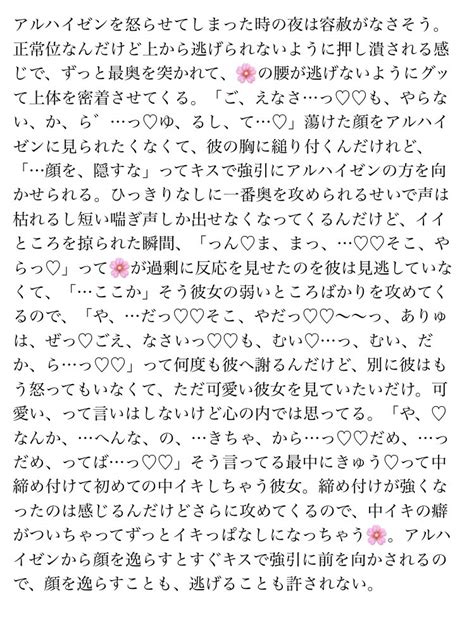 アルハイゼンを怒らせてしまった時の夜は容赦がなさそう。
正常位なんだけど上から逃げられないように押し潰される感
じで、ずっと最奥を突かれて、🌸の腰が逃げないようにグッ
て上体を密着させてくる。「ご、えなさ…っ♡♡も、やらな
い、か、ら゛…っ♡ゆ、るし、て…♡」蕩けた顔をアルハイ
ゼンに見られたくなくて、彼の胸に縋り付くんだけれど、
「…顔を、隠すな」ってキスで強引にアルハイゼンの方を向
かせられる。ひっきりなしに一番奥を攻められるせいで声は
枯れるし短い喘ぎ声しか出せなくなってくるんだけど、イイ
ところを掠られた瞬間、「っん♡ま、まっ、…♡♡そこ、や
らっ♡」って🌸が過剰に反応を見せたのを彼は見逃していな
くて、「…ここか」そう彼女の弱いところばかりを攻めてく
るので、「や、…だっ♡♡そこ、やだっ♡♡〜〜っ、ありゅ
は、ぜっ♡ごえ、なさいっ♡♡も、むい♡…っ、むい、だ
か、ら…っ♡♡」って何度も彼へ謝るんだけど、別に彼はも
う怒ってもいなくて、ただ可愛い彼女を見ていたいだけ。可
愛い、って言いはしないけど心の内では思ってる。「や、♡
なんか、…へんな、の、…きちゃ、から…っ♡♡だめ、…っ
だめ、ってば…っ♡♡」そう言ってる最中にきゅう♡って中
締め付けて初めての中イキしちゃう彼女。締め付けが強くな
ったのは感じるんだけどさらに攻めてくるので、中イキの癖
がついちゃってずっとイキっぱなしになっちゃう🌸。アルハ
イゼンから顔を逸らすとすぐキスで強引に前を向かされるの
で、顔を逸らすことも、逃げることも許されない。